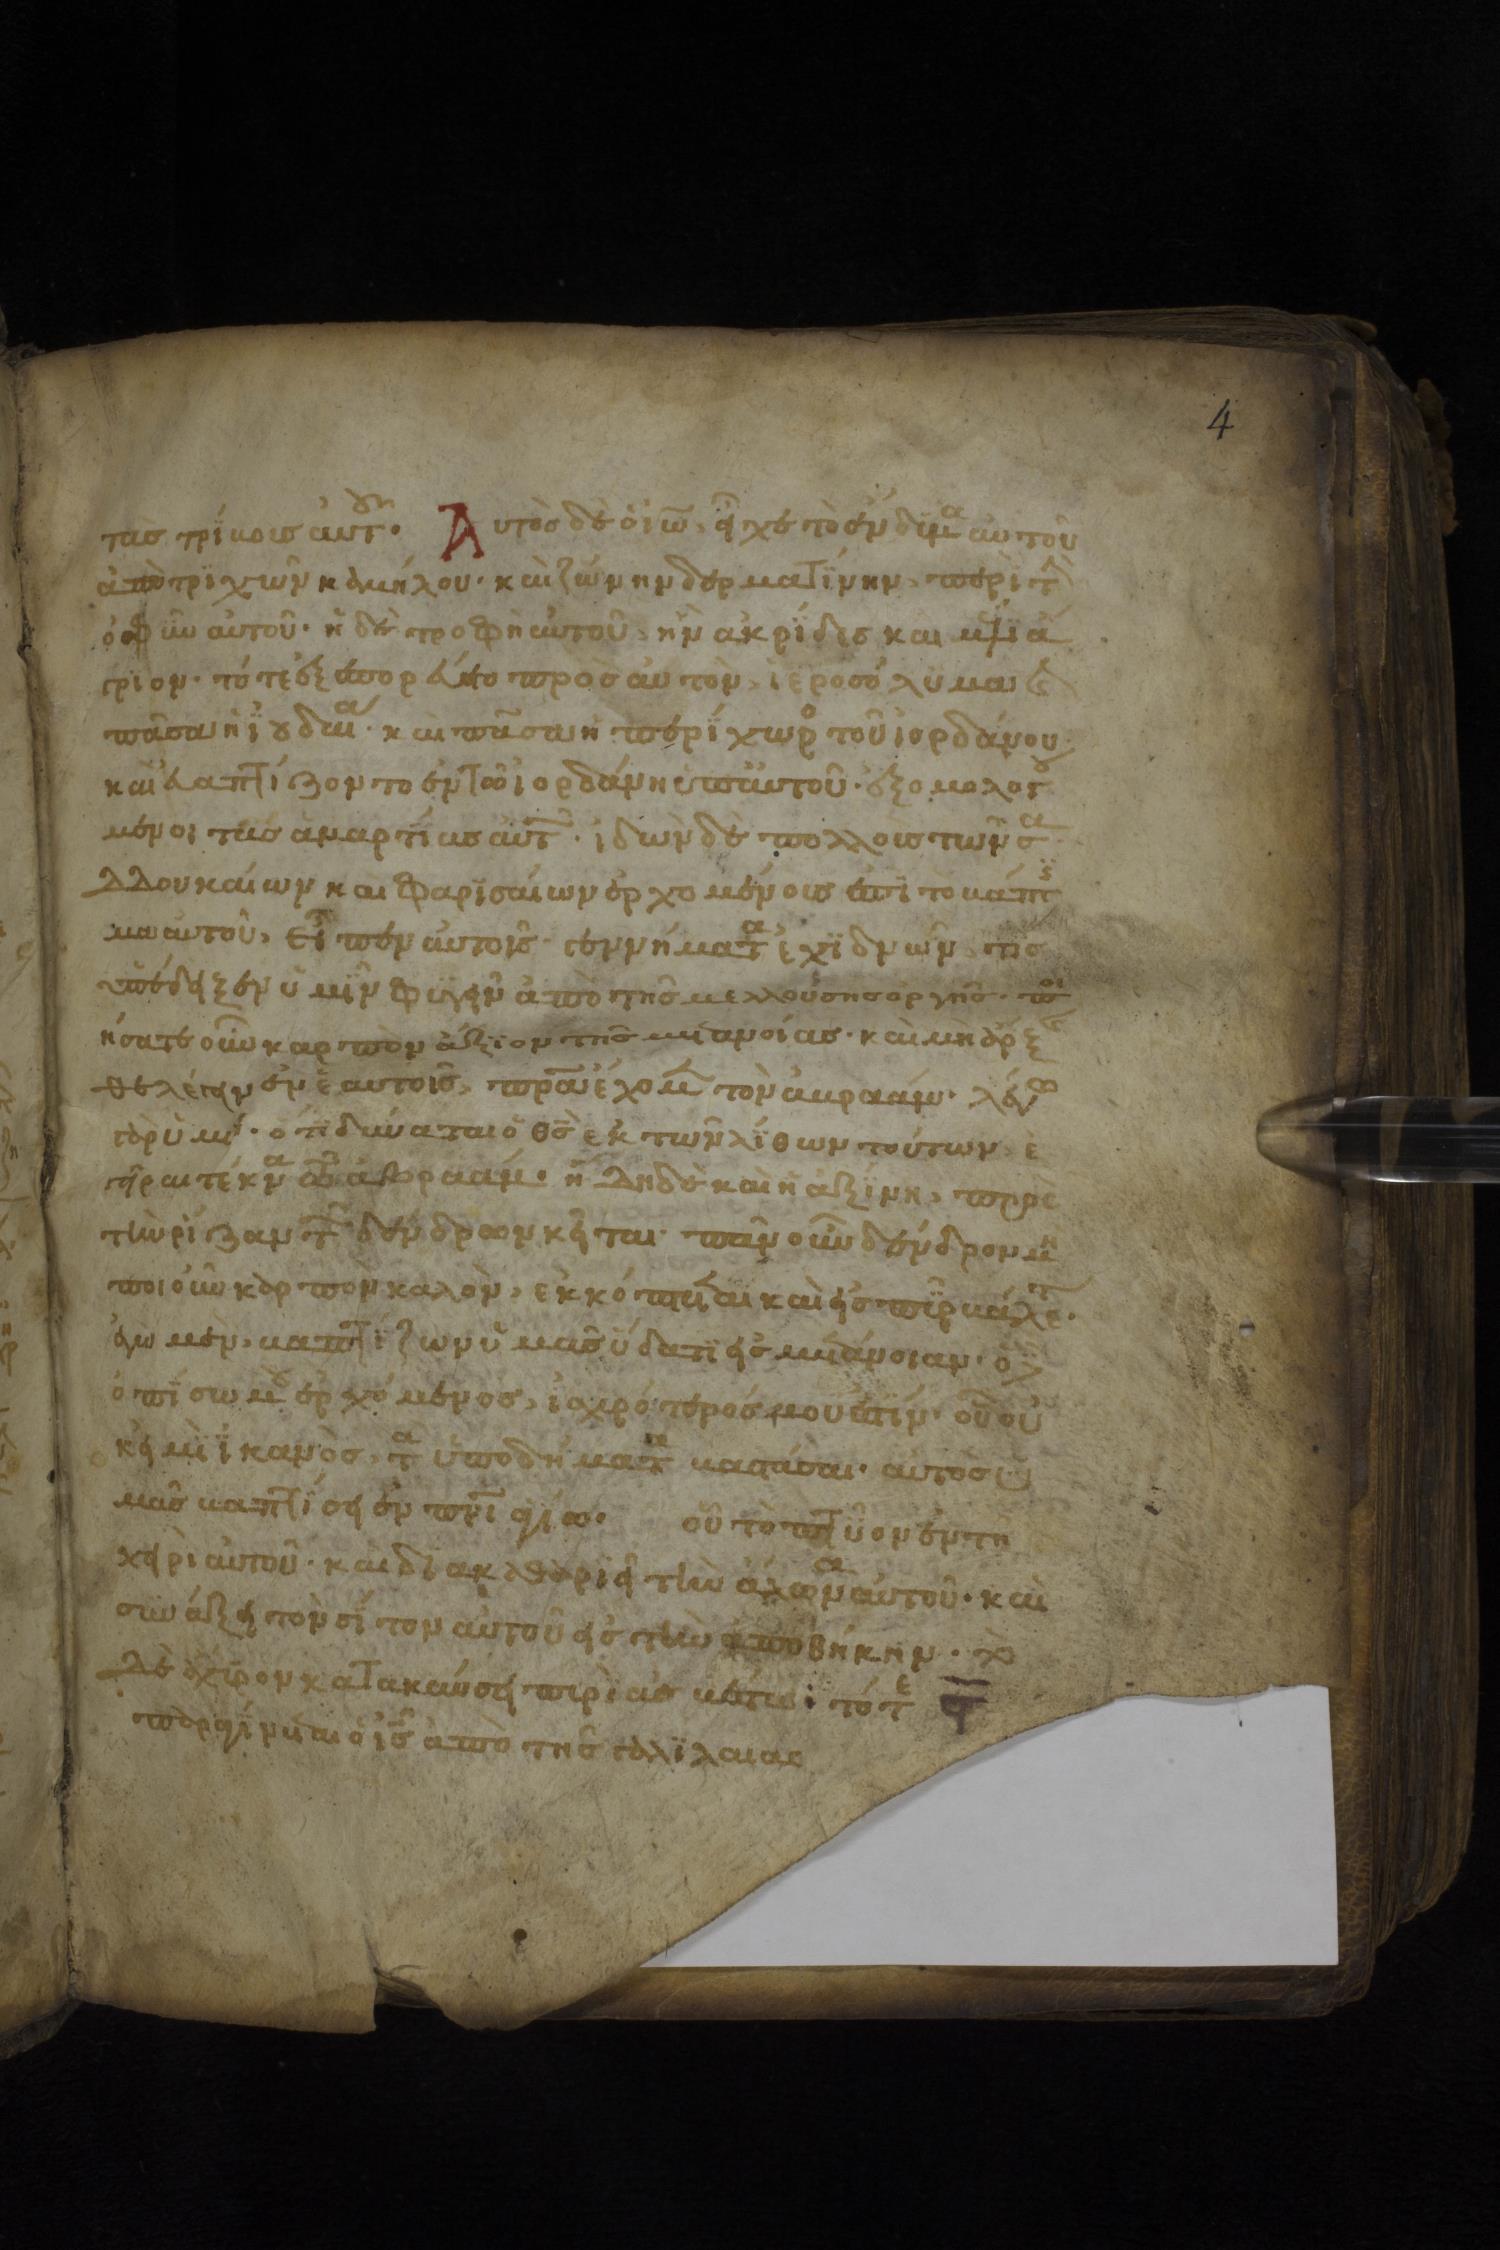 4
τὰσ τρίβουσ αὐτ· Αὐτὸσ δὲ ὁ ἰω, εἶχε τὸ ἔνδϋμα αὐτοῦ
ἀπὸ τρϊχῶν καμήλου· καὶ ζώνην δερματΐνην, περὶ τὴν
ὀσφὺν αὐτοῦ· ἡ δὲ τροφὴ αὐτοῦ, ἦν ἀκρΐδεσ καὶ μέλϊ ἄ
γριον· τότε ἐξεπορεύετο πρὸσ αὐτὸν, ἱεροσόλϋμα καὶ
πᾶσα ἡ ϊουδαία· καὶ πᾶσα ἡ περίχωρο τοῦ ἰορδάνου
καὶ ἐβαπτίζοντο ἐν τῶ ἰορδάνη ὑπ' αὐτοῦ· ἐξομολογού
μενοι τὰσ ἁμαρτίασ αὐτ· ἰδὼν δὲ πολλοὺσ τῶν σα
δδουκαίων καὶ φαρϊσαίων ἐρχομένουσ ἐπὶ τὸ βάπτϊσ
μα αὐτοῦ, εἶπεν αὐτοῖσ· γεννήματα ἐχϊδνῶν, τίσ
ὑπέδειξεν ὑμῖν φϋγεῖν ἀπὸ τῆσ μελλούσησ ὀργῆσ· ποι
ήσατε οὖν καρπὸν ἄξϊον τῆσ μετανοίασ· καὶ μὴ δόξη
τε λέγειν ἐν ἑαυτοῖσ, πρα ἔχομεν τὸν ἀβραάμ· λέγω
γὰρ ὑμῖν· ὅτι δύναται ὁ θσ ἐκ τῶν λίθων τούτων ἐ
γεῖραι τέκνα τῶ ἀβραάμ· ἤδη δὲ καὶ ἡ ἀξΐνη, πρὸσ
τὴν ῥίζαν τῶν δένδρων κεῖται· πᾶν οὖν δένδρον μὴ
ποιοῦν καρπὸν καλὸν, ἐκκόπτεται καὶ εἰσ πῦρ βάλλετ·
ἐγὼ μὲν, βαπτΐζων ὑμᾶσ ὕδατϊ εἰσ μετάνοιαν· ὁ δὲ
ὀπΐσω μου ἐρχόμενοσ, ἰσχυρότερόσ μου ἐστϊν· οὗ οὐ
κ εἰμὶ ϊκανὸσ, τα ὑποδήματα βαστάσαι· αὐτὸσ ὑ
μᾶσ βαπτίσει ἐν πνι ἁγίω· οὗ τὸ πτύον ἐν τῆ
χειρὶ αὐτοῦ· καὶ διακαθαρϊεῖ τὴν ἅλωνα αὐτοῦ· καὶ
συνάξει τὸν σίτον αὐτοῦ εἰσ τὴν ἀποθήκην· τὸ
δὲ ἄχϋρον κατακαύσει πυρὶ ἀσβέστω· τότε
παραγΐνεται ὁ ισ ἀπὸ τῆσ γαλϊλαιασ